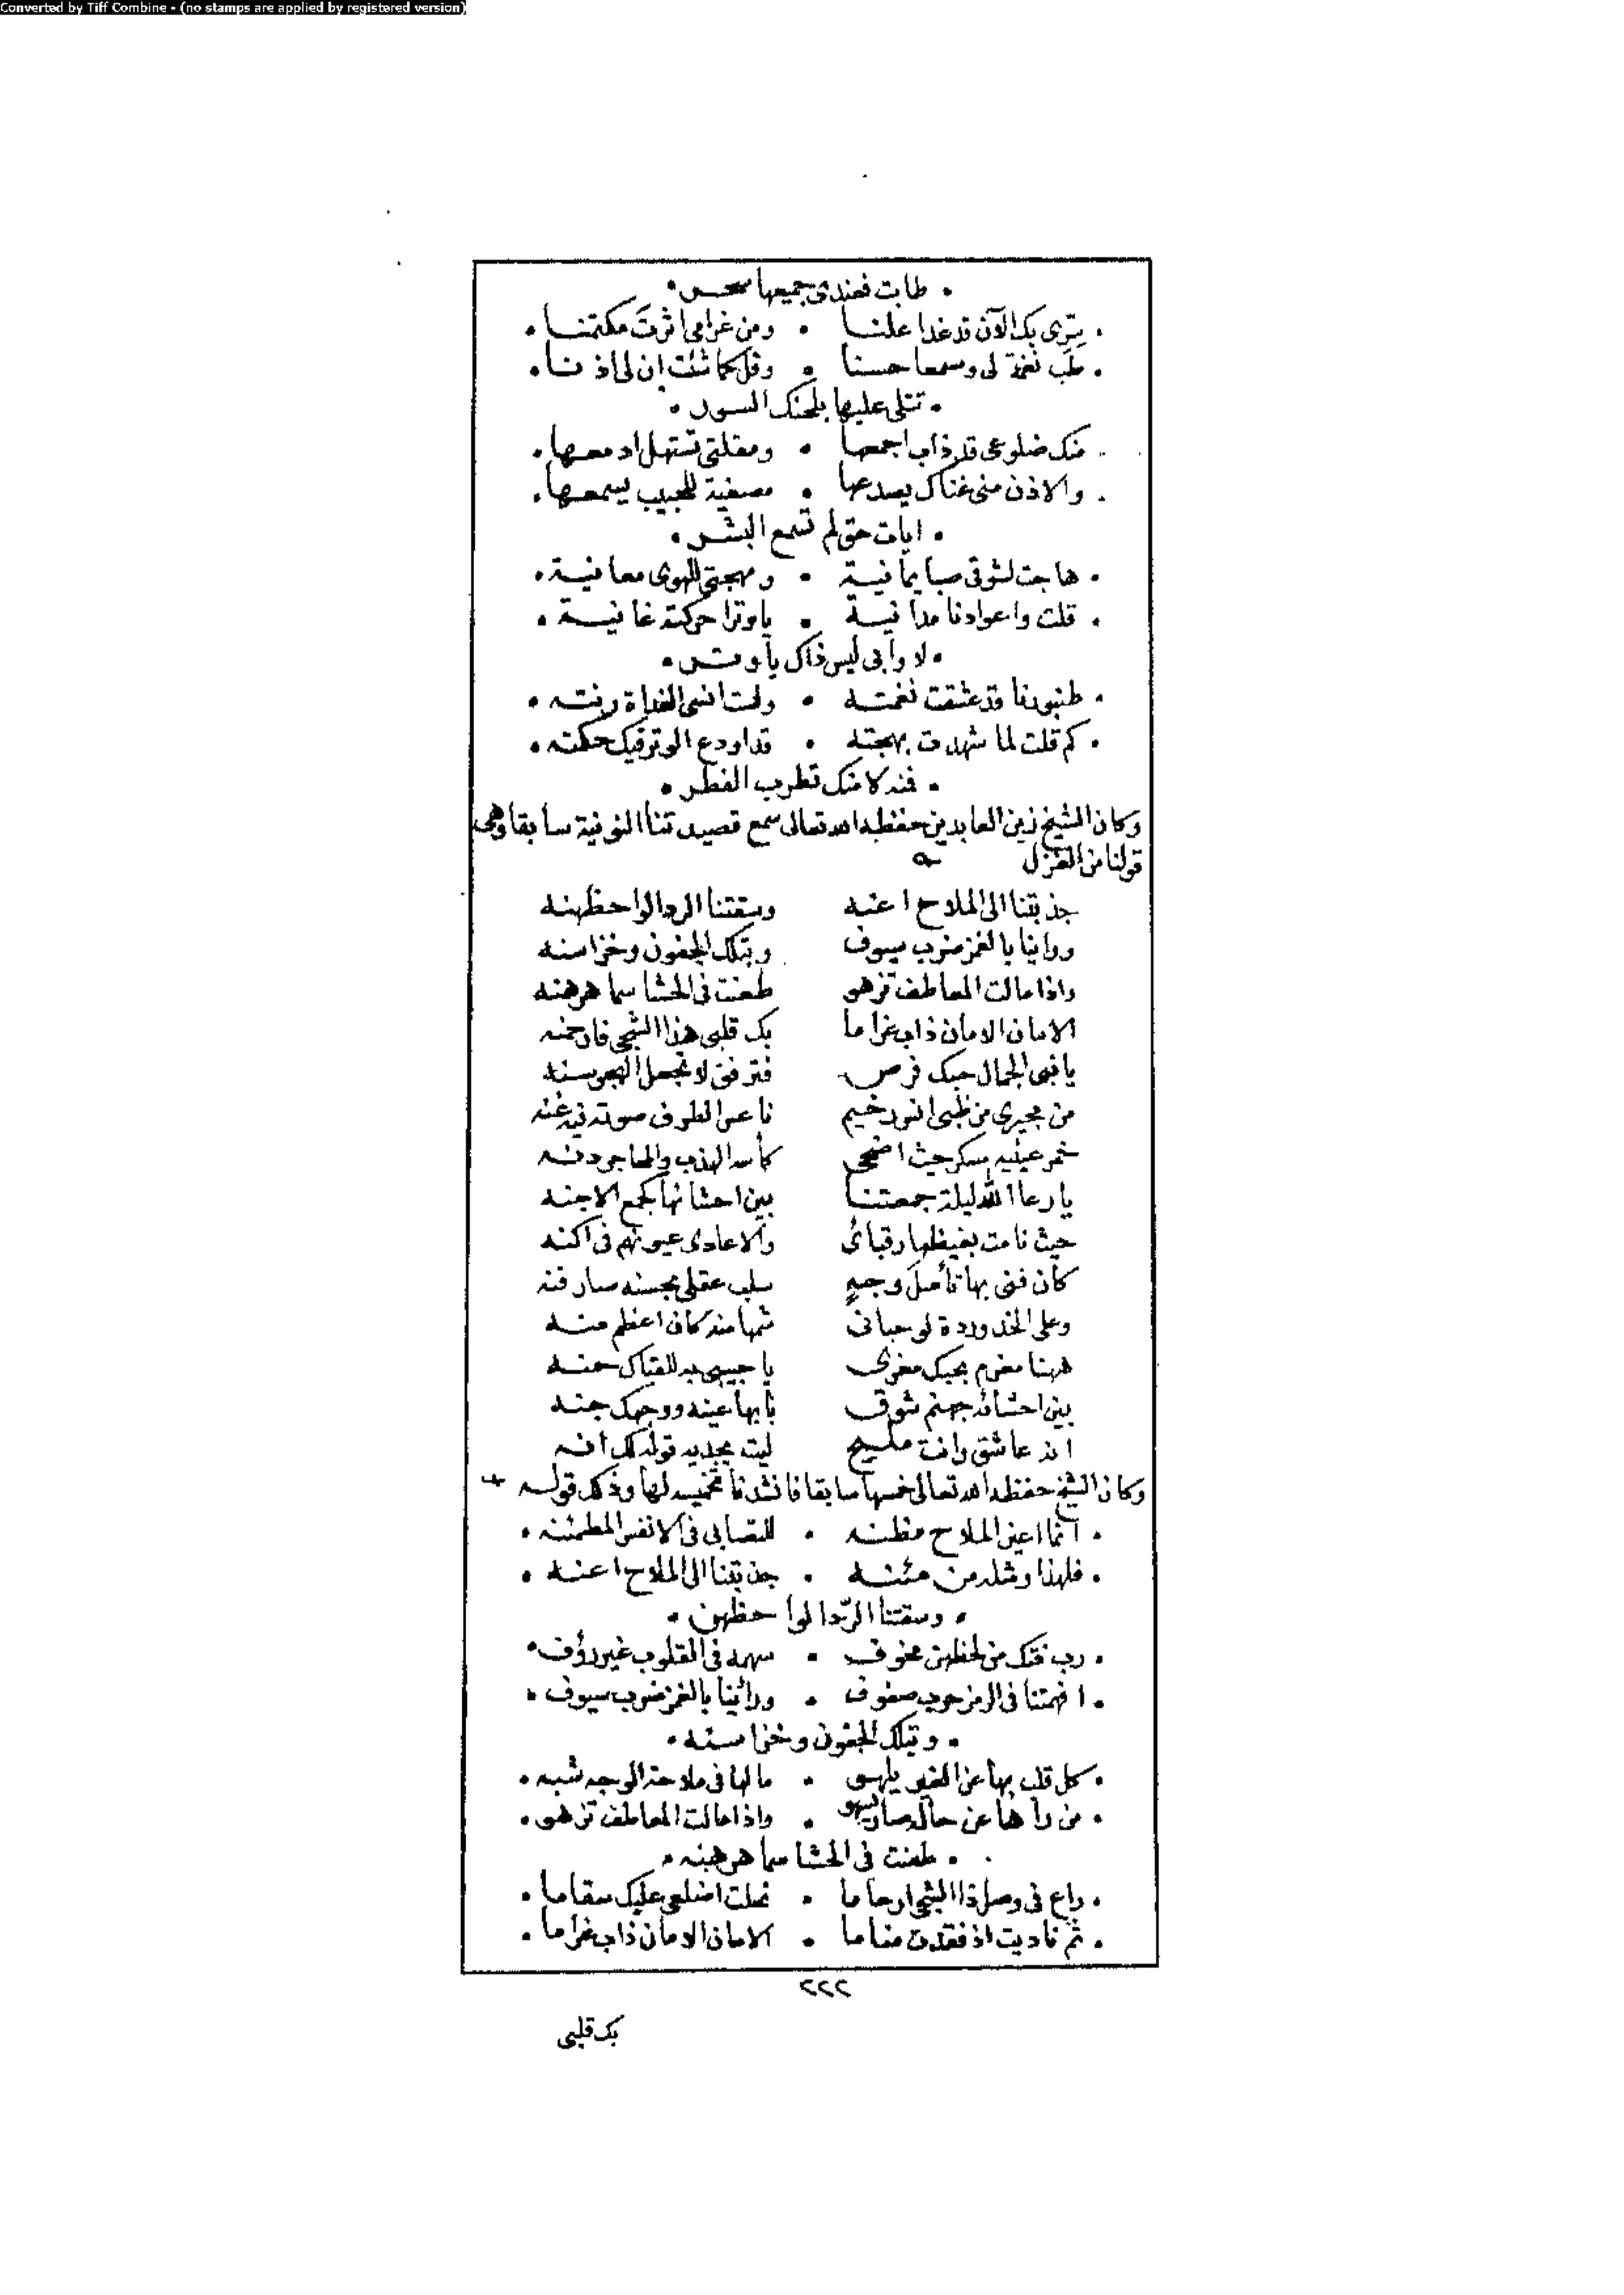 Converted by Tiff Combine - (no stamps are applied by registered version)
• طابت فعندي جميعها سحر •
• سري بك الآن قد غدا علنا • ومن غرامي اثرت مكتمنا •
• طب نغمة لي وسمعا حسنا • وقل كما شئت ان لي اذنا •
• تتلى عليها بلحنك السور •
• منك ضلوعي قد ذاب اجمعها • ومقلتي تستهل ادمعها •
• والاذن مني غناك يصدعها • مصغية للحبيب يسمعها •
• ايات حق لم تسمع البشر •
• هاجت لشوقي صبا يمانية • ومهجتي للهوى معانية •
• قلت واعوادنا مدانية • ياوترا حركته غانية •
• لا وابي ليس ذاك ياوتر •
• طنبورنا قد عشقت نغمته • ولست انسى الغداة رنته •
• كم قلت لما شهدت بهجته • قد اودع الله فيك حكمته •
• فندكا منك تطرب الفطر •
وكان الشيخ زين العابدين حفظه الله تعالى سمع قصيدتنا النونية سابقا وهي
قولنا من الغزل
جذبتنا الى الملاح اعنه وسقتنا الردا لواحظهنه
وراينا بالغمز ضرب سيوف وبتلك الجفون وخز اسنه
واذا مالت المعاطف تزهو طعنت في الحشا سما هرهنه
الامان الامان ذاب غراما بك قلبي هذا الشجي فارحمنه
يا نبي الجمال حبك فرض فترفق لا تجعل الهجر سنه
من مجيري من ظبي انس رخيم ناعس الطرف صوته فيه غنه
خمر عينيه مسكر حيث اضحى كأسه الهدب والمحاجر دنه
يا رعا الله ليلة جمعتنا بين احشائها كجمع الاجنه
حيث نامت بغيظها رقبائي والاعادي عيونهم في اكنه
كان فني بها تأمل وجه سلب عقلي بحسنه صار فنه
وعلى الخد وردة لو حباني شمها منه كان اعظم منه
ههنا مغرم بحبك مغرى يا حبيبي به للقياك حنه
بين احشائه جهنم شوق يا بها عينه ووجهك جنه
انه عاشق وانت مليح ليت يجديه قوله لك انه
وكان الشيخ حفظه الله تعالى خمسها سابقا فانشدنا تخميسه لها وذلك قوله
• انما اعين الملاح مظنه • للتصابي في الانفس المطمئنه •
• فلهذا ومثله من مئنه • جذبتنا الى الملاح اعنه •
• وسقتنا الردا لواحظهن •
• رب فتك من لحظهن مخوف • سهمه في القلوب غير رؤف •
• افهمتنا في الرمز حرب صفوف • ورائينا بالغمز ضرب سيوف •
• وبتلك الجفون وخز اسنه •
• كل قلب بها عن الغير يلهو • ما لها في ملاحة الوجه شبه •
• من رآها عن حاله صار يسهو • واذا مالت المعاطف تزهو •
• طعنت في الحشا سما هرهنه •
• راع في وصل ذا الشجي ارحاما • نحلت اضلعي عليك سقاما •
• ثم ناديت اذ فقدت مناما • الامان الامان ذاب غراما •
٢٢٢
بك قلبي